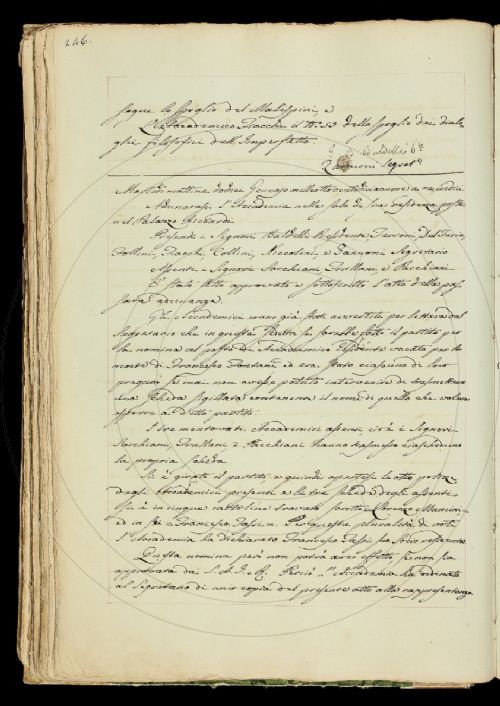 246.
segue lo spoglio del Malespini, e
L'Accademico Fiacchi il N.° 53 dello spoglio dei dialo-
ghi filosofici dell'Imperfetto
Zannoni Segret.°
Martedì mattina dodici Gennaio ad ore undici
adunarasi l'Accademia nella sala di sua residenza posta
nel Palazzo Riccardi
Presenti i Signori Baldelli Presidente, Ferroni, Del Furia,
Follini, Fiacchi, Collini, Niccolini, e Zannoni Segretario
Assenti i Signori Sarchiani, Frullani, e Becchiani
È stato letto approvato e sottoscritto l'atto della pas-
sata adunanza.
Gli Accademici erano già stati avvertiti per lettera dal
Segretario che in questa si sarebbe fatto il partito per
la nomina al posto di Accademico Residente vacato per la
morte di Francesco Fontani, ed era stato ciascuno di loro
pregato se mai non avesse potuto intervenire di trasmettere
una scheda sigillata contenente il nome di quello che voleva
esporre a detto partito.
I tre mentovati Accademici assenti, cioè i Signori
Sarchiani, Frullani, e Becchiani hanno trasmesso ciascheduno
la propria scheda.
Si è girato il partito e quindi apertesi le otto polizze
degli Accademici presenti e le tre schede degli assenti
si è in cinque cartoline trovato scritto Lorenzo Mancini
ed in sei Francesco Tassi. Per questa pluralità di voti
l'Accademia ha dichiarato Francesco Tassi suo socio residente.
Questa nomina però non potrà aver effetto, se non sia
approvata da S. A. I. e R. Perciò l'Accademia ha ordinato
al Segretario di unir copia del presente atto alla rappresentanza